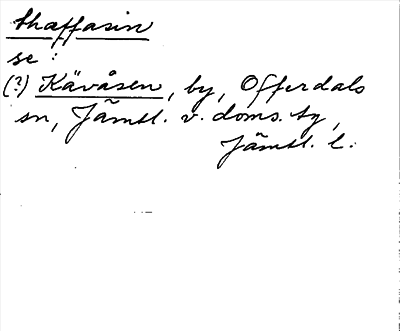 thaffasin
se:
(?) Kävåsen, by, Offerdals
sn, Jämtl. v. doms. tg,
Jämtl. l.